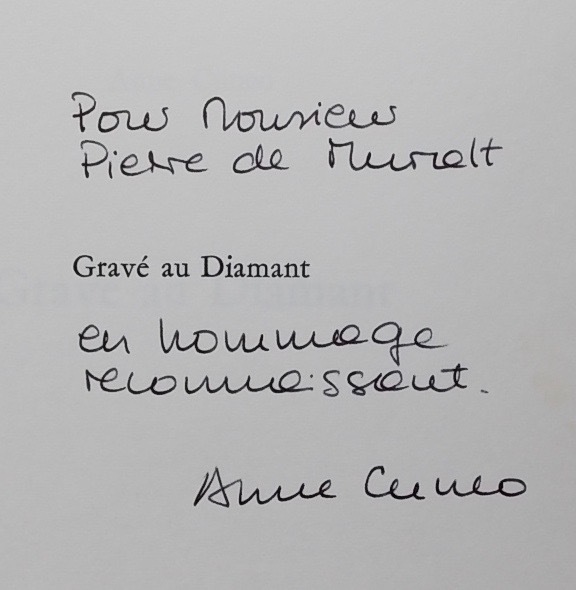 Pour Monsieur
Pierre de Muralt
Gravé au Diamant
en hommage
reconnaissant.
Anne Cuneo